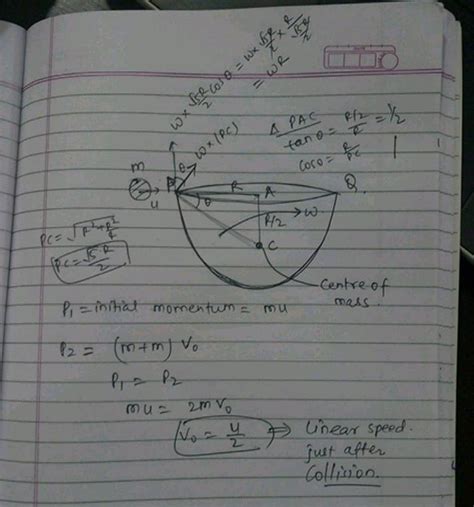 ω × √5R/2 cosθ = ω × √5R/2 × R/(√5R/2)
= ωR
Δ PAC
tanθ = R/2/R = 1/2
cosθ = R/PC
ω × (PC)
θ
m
P
R
A
Q
u
θ
R/2
ω
C
PC = √R²+R²/4
PC = √5R/2
Centre of
mass.
P₁ = initial momentum = mu
P₂ = (m+m) V₀
P₁ = P₂
mu = 2mV₀
V₀ = u/2 ⇒ Linear speed.
just after
Collision.